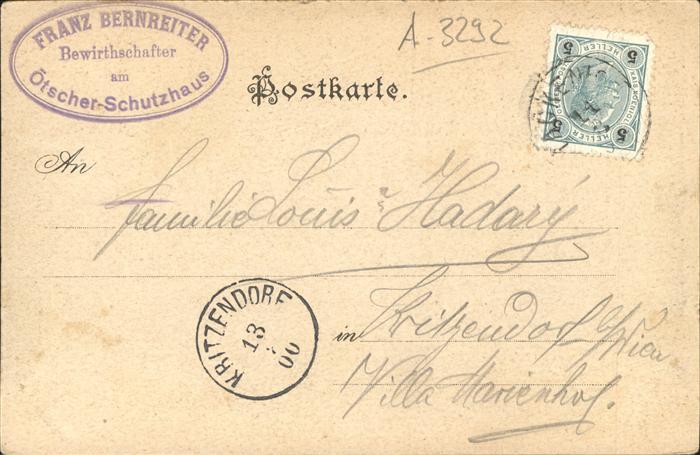 FRANZ BERNREITER
Bewirthschafter
am
Ötscher-Schutzhaus
A-3292
Postkarte.
5 5
HELLER HELLER
5 5
An
Familie Louis Hadarÿ
KRITZENDORF
13
00
in Kritzendorf b/Wien
Villa Marienhof.